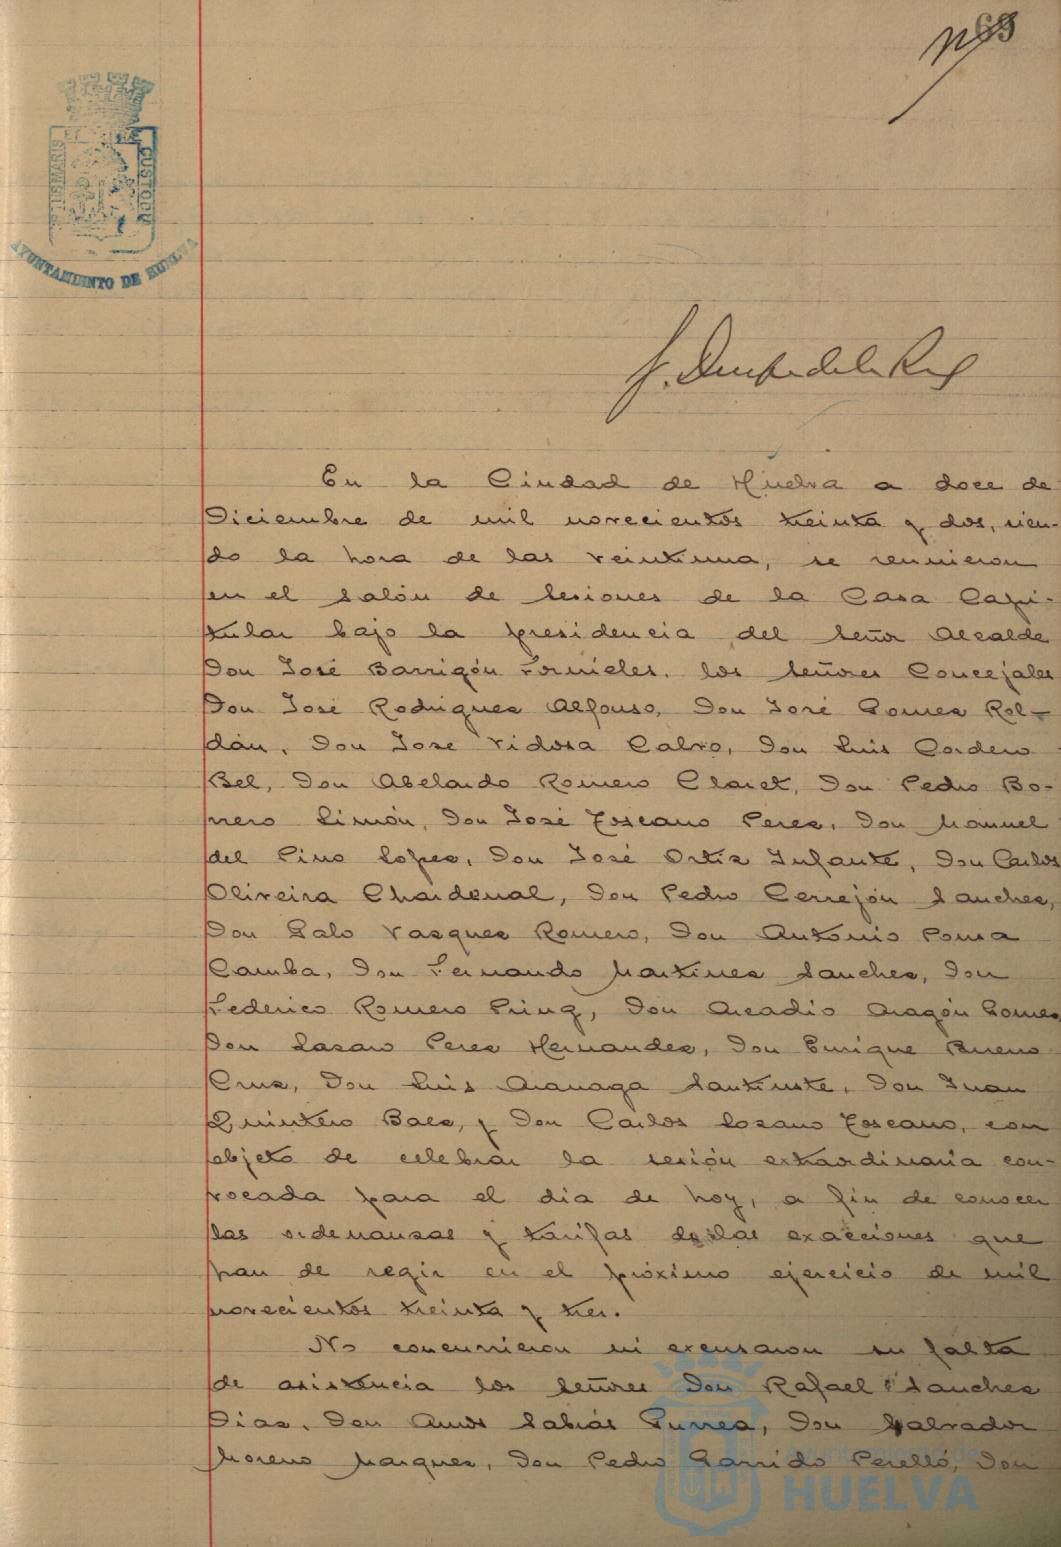 69
PORTUS MARIS
CUSTODIA
AYUNTAMIENTO DE HUELVA
En la Ciudad de Huelva a doce de
Diciembre de mil novecientos treinta y dos, sien-
do la hora de las veintiuna, se reunieron
en el Salón de Sesiones de la Casa Capi-
tular bajo la presidencia del Señor Alcalde
Don José Barrigón Fornieles, los Señores Concejales
Don José Rodrigues Alfonso, Don José Gomes Rol-
dán, Don Jose Vidosa Calvo, Don Luis Cordero
Bel, Don Abelardo Romero Claret, Don Pedro Bo-
rrero Limón, Don José Toscano Peres, Don Manuel
del Pino Lopes, Don José Ortis Infante, Don Carlos
Oliveira Chardenal, Don Pedro Cerrejón Sanches,
Don Galo Vasques Romero, Don Antonio Ponsa
Camba, Don Fernando Martines Sanches, Don
Federico Romero Pring, Don Arcadio Aragón Gomes
Don Lasaro Peres Hernandes, Don Enrique Bueno
Crus, Don Luis Aranaga Santiuste, Don Juan
Quintero Baes, y Don Carlos Losano Toscano, con
objeto de celebrar la sesión extraordinaria con-
vocada para el dia de hoy, a fin de conocer
las ordenansas y tarifas de las exacciones que
han de regir en el próximo ejercicio de mil
novecientos treinta y tres.
No concurrieron ni excusaron su falta
de asistencia los Señores Don Rafael Sanches
Dias, Don Amos Sabrás Gurrea, Don Salvador
Moreno Marques, Don Pedro Garrido Perelló, Don
Ayuntamiento de
HUELVA